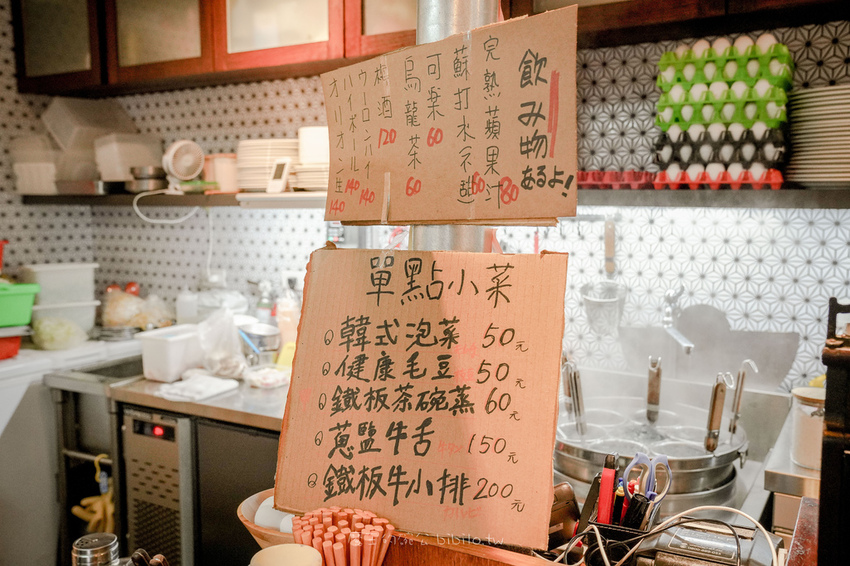 飲み物あるよ!
完熟蘋果汁 80
蘇打水(不甜) 60
可楽 60
烏龍茶 60
梅酒 120
ウーロンハイ 140
ハイボール 140
オリオン生 140
單點小菜
韓式泡菜 50元
健康毛豆 50元
鐵板茶碗蒸 60元
蔥鹽牛舌 150元
鐵板牛小排 200元